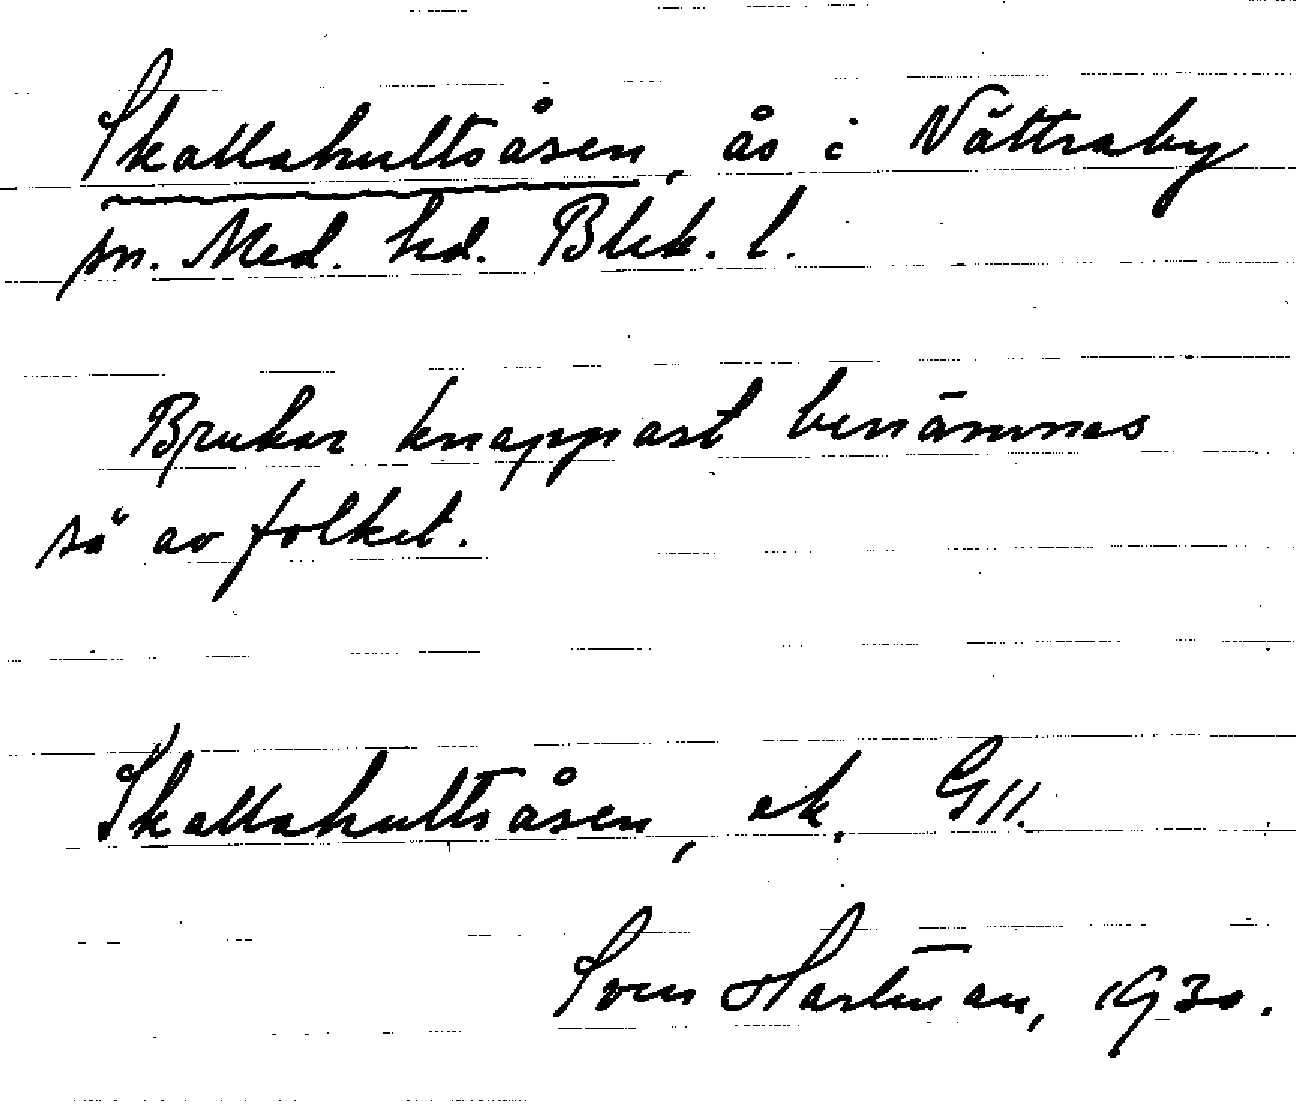 Skallahultsåsen, ås i Nättraby
sn. Med. hd. Blek. l.
Brukar knappast benämnas
så av folket.
Skallahultsåsen, ek. G11.
Sven Hartman, 1930.